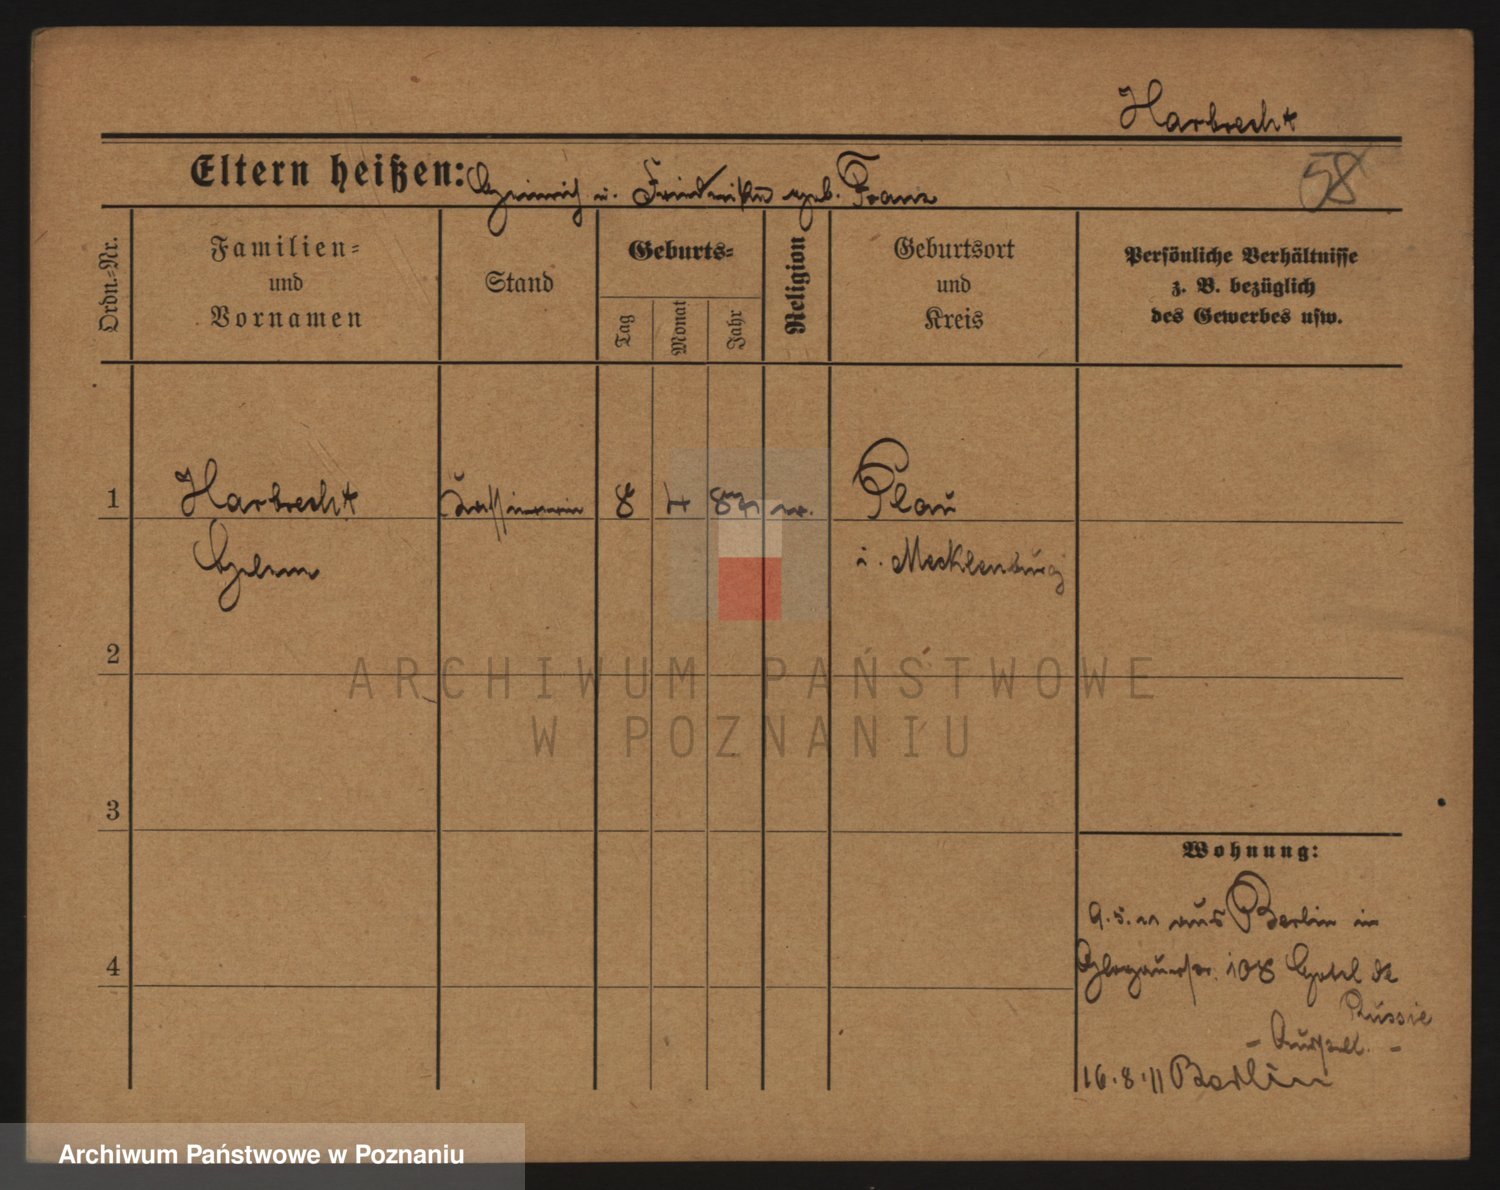 Harbrecht
58
Eltern heißen: Heinrich u. Friederike geb. Franz
Ordn.-Nr.
Familien- und Vornamen
Stand
Geburts-
Tag
Monat
Jahr
Religion
Geburtsort und Kreis
Persönliche Verhältnisse z. B. bezüglich des Gewerbes usw.
1 Harbrecht 8 4 87 ev. Plau
Helene i. Mecklenburg
2
ARCHIWUM PAŃSTWOWE
W POZNANIU
3
Wohnung:
9.5.11 aus Berlin in
4
Glogauerstr. 108 Hotel de
Russie
16.8.11 Berlin
Archiwum Państwowe w Poznaniu